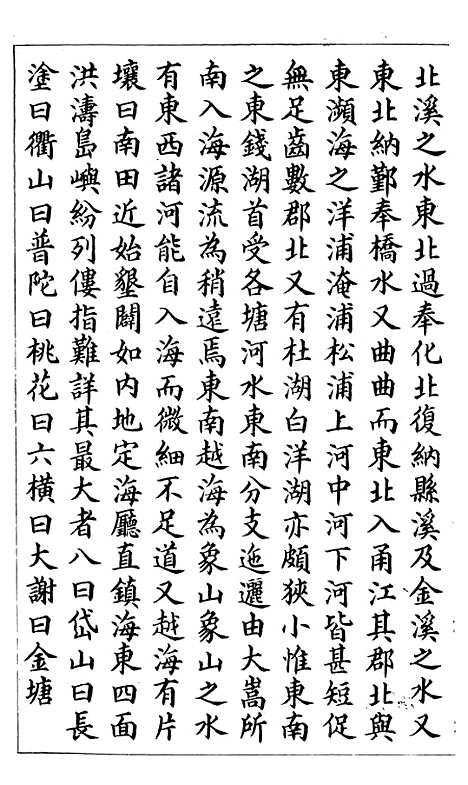 北溪之水東北過奉化北復納縣溪及金溪之水又
東北納鄞奉橋水又曲曲而東北入甬江其郡北與
東瀕海之洋浦淹浦松浦上河中河下河皆甚短促
無足齒數郡北又有杜湖白洋湖亦頗狹小惟東南
之東錢湖首受各塘河水東南分支迤邐由大嵩所
南入海源流為稍遠焉東南越海為象山象山之水
有東西諸河能自入海而微細不足道又越海有片
壤曰南田近始墾闢如内地定海廳直鎮海東四面
洪濤島嶼紛列僂指難詳其最大者八曰岱山曰長
塗曰衢山曰普陀曰桃花曰六橫曰大謝曰金塘